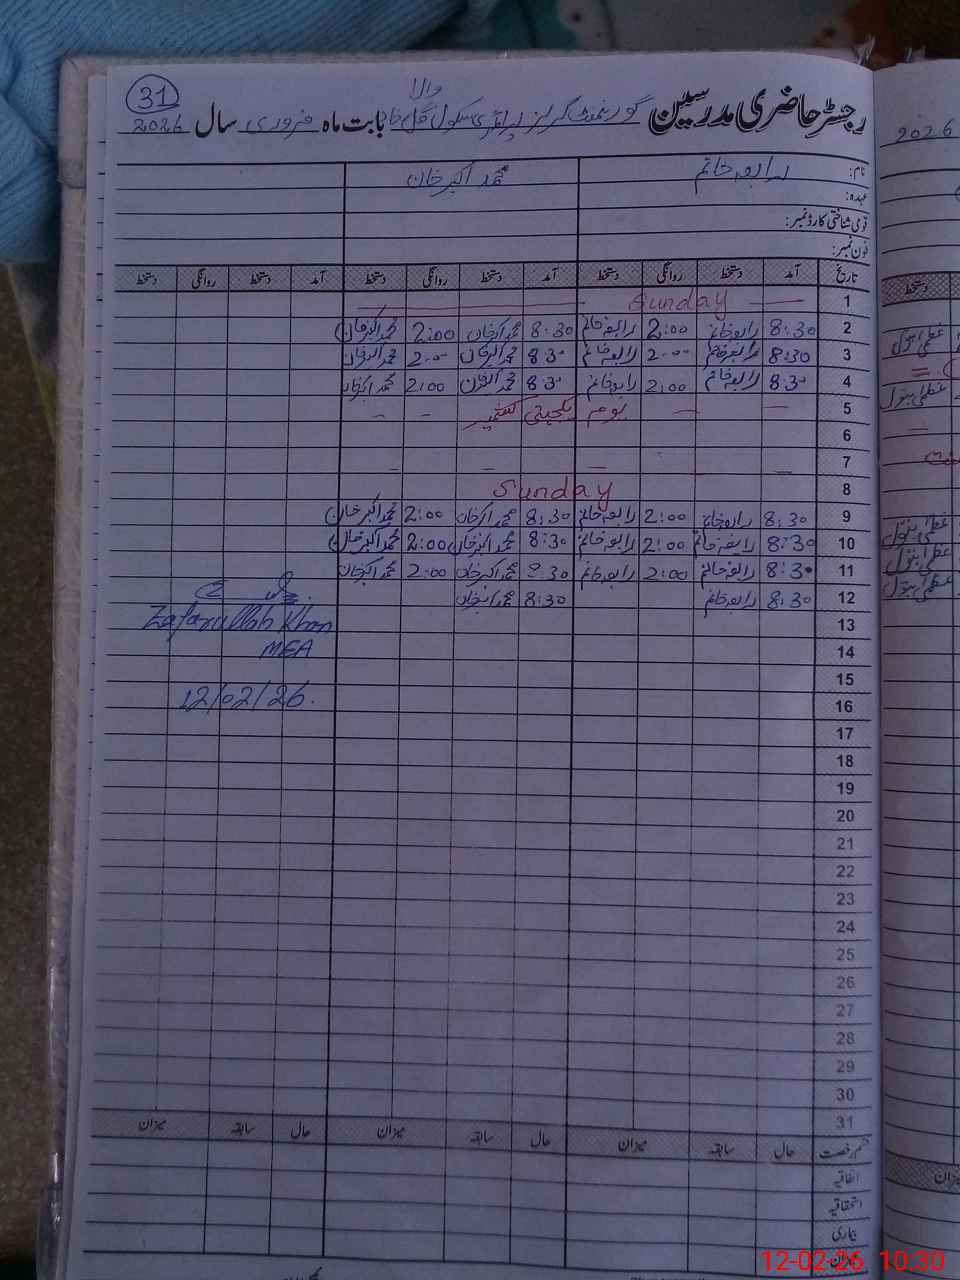 31
رجسٹر حاضری مدرسین گورنمنٹ گرلز پرائمری سکول گل خان والا بابت ماہ فروری سال 2026
نام: رابعہ خانم محمد اکبر خان
عہدہ:
قومی شناختی کارڈ نمبر:
فون نمبر:
تاریخ آمد دستخط روانگی دستخط آمد دستخط روانگی دستخط آمد دستخط روانگی دستخط
1 — Sunday —
2 8:30 رابعہ خانم 2:00 رابعہ خانم 8:30 محمد اکبر خان 2:00 محمد اکبر خان
3 8:30 رابعہ خانم 2:00 رابعہ خانم 8:30 محمد اکبر خان 2:00 محمد اکبر خان
4 8:30 رابعہ خانم 2:00 رابعہ خانم 8:30 محمد اکبر خان 2:00 محمد اکبر خان
5 — — یوم یکجہتی کشمیر - -
6
7 — — - -
8 Sunday
9 8:30 رابعہ خانم 2:00 رابعہ خانم 8:30 محمد اکبر خان 2:00 محمد اکبر خان
10 8:30 رابعہ خانم 2:00 رابعہ خانم 8:30 محمد اکبر خان 2:00 محمد اکبر خان
11 8:30 رابعہ خانم 2:00 رابعہ خانم 8:30 محمد اکبر خان 2:00 محمد اکبر خان
12 8:30 رابعہ خانم 8:30 محمد اکبر خان
Zafarullah Khan
MEA
12/02/26.
13
14
15
16
17
18
19
20
21
22
23
24
25
26
27
28
29
30
31
قسم رخصت حال سابقہ میزان حال سابقہ میزان حال سابقہ میزان
اتفاقیہ
استحقاقیہ
بیماری
میزان
2026
دستخط
عظمیٰ بتول
عظمیٰ بتول
عظمیٰ بتول
عظمیٰ بتول
عظمیٰ بتول
میزان
12-02-26 10:30